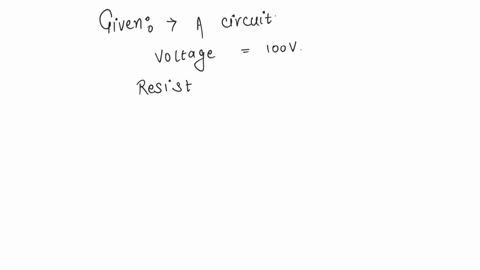 Given: → A circuit
Voltage = 100V.
Resist